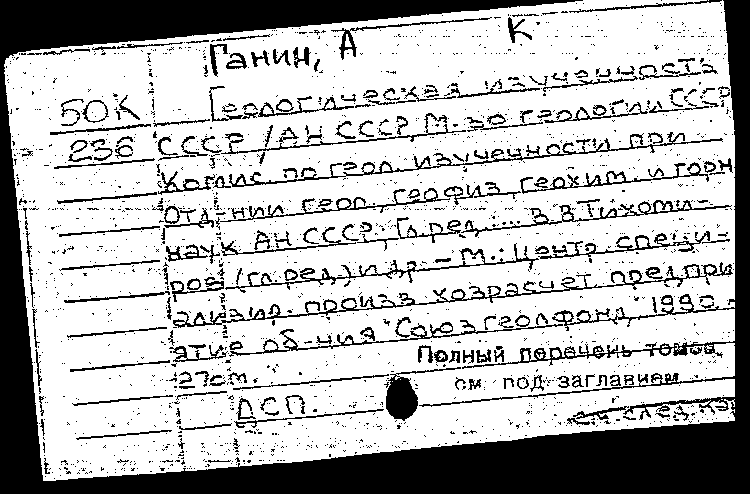 Ганин, А К.
50К Геологическая изученность
236 СССР / АН СССР, М-во геологии СССР
Комис. по геол. изученности при
Отд-нии геол., геофиз, геохим. и горн
наук АН СССР; Гл.ред.: ... В.В.Тихоми-
ров (гл.ред.) и др. – М.: Центр. специ-
ализир. произв хозрасчет предпри
ятие об-ния "Союзгеолфонд," 1990 -
27см. Полный перечень томов
см под заглавием
ДСП.
см след. ка